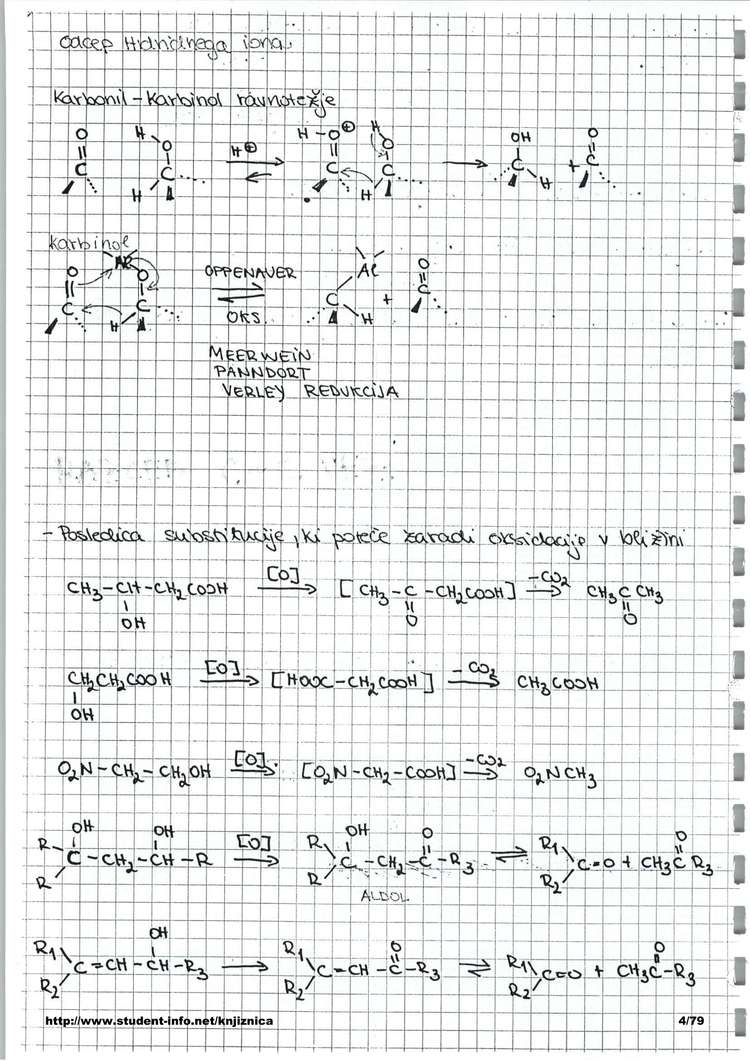 odcep Hidridnega iona.
Karbonil-Karbinol ravnotežje
O H O H⊕ H-O⊕ H O OH O
C C H C C H C H + C
Karbinol
Al O O OPPENAUER Al O
C H C OKS. C H + C
MEERWEIN
PANNDORT
VERLEY REDUKCIJA
- Posledica substitucije, ki poteče zaradi oksidacije v bližini
CH3-CH-CH2COOH [O] [CH3-C-CH2COOH] -CO2 CH3CCH3
OH O O
CH2CH2COOH [O] [HOOC-CH2COOH] -CO2 CH3COOH
OH
O2N-CH2-CH2OH [O]. [O2N-CH2-COOH] -CO2 O2NCH3
OH OH [O] OH O O
R R C-CH2-CH-R R1 R C-CH2-C-R3 ⇌ R1 R2 C=O + CH3CR3
ALDOL
OH O O
R1 R2 C=CH-CH-R3 → R1 R2 C=CH-C-R3 ⇌ R1 R2 C=O + CH3C-R3
http://www.student-info.net/knjiznica 4/79